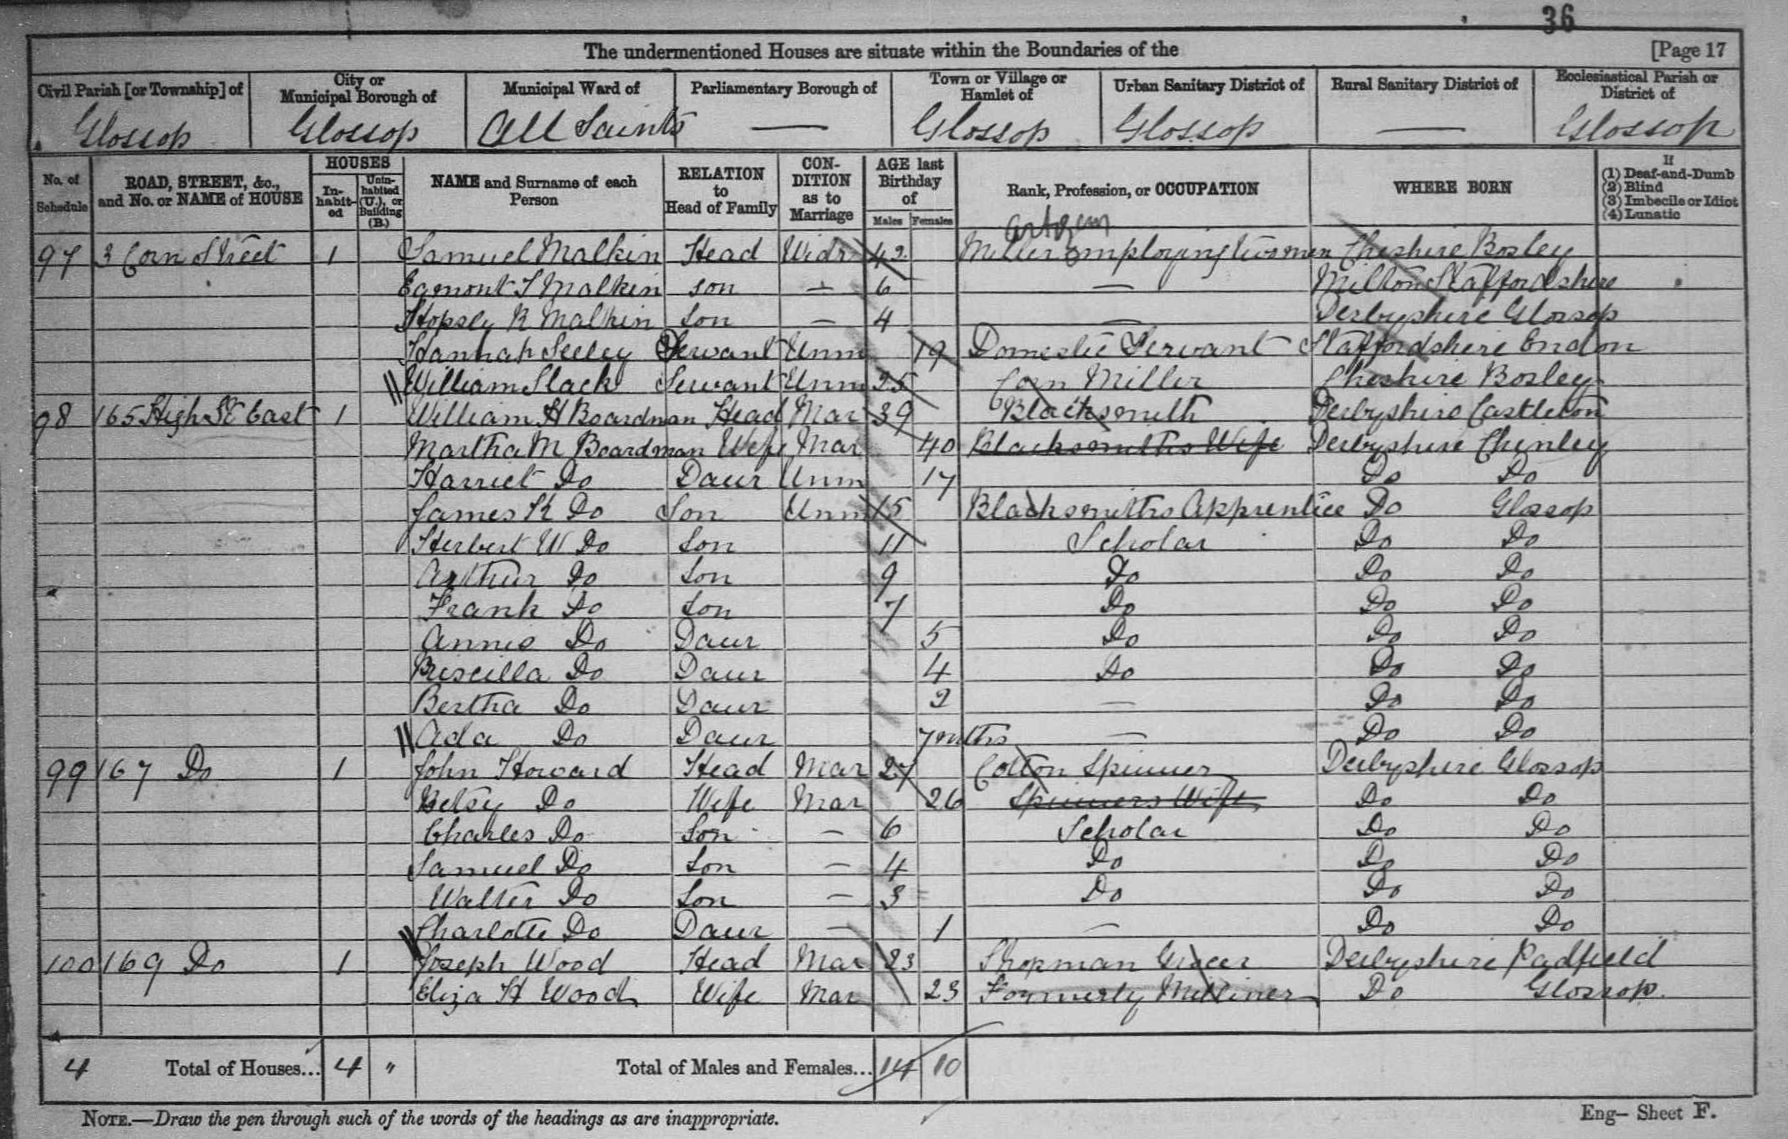 36
The undermentioned Houses are situate within the Boundaries of the [Page 17
Civil Parish [or Township] of City or Municipal Borough of Municipal Ward of Parliamentary Borough of Town or Village or Hamlet of Urban Sanitary District of Rural Sanitary District of Ecclesiastical Parish or District of
Glossop Glossop All Saints — Glossop Glossop — Glossop
No. of Schedule ROAD, STREET, &c., and No. or NAME of HOUSE HOUSES In-habit-ed Unin-habited (U.), or Building (B.) NAME and Surname of each Person RELATION to Head of Family CON-DITION as to Marriage AGE last Birthday of Males Females Rank, Profession, or OCCUPATION WHERE BORN If (1) Deaf-and-Dumb (2) Blind (3) Imbecile or Idiot (4) Lunatic
97 3 Corn Street 1 Samuel Malkin Head Widr 42 Miller employing two men Cheshire Bosley
Egmont S Malkin Son — 6 — Milton Staffordshire
Hopsly R Malkin Son — 4 — Derbyshire Glossop
Hannah Seeley Servant Unm 19 Domestic Servant Staffordshire Endon
William Slack Servant Unm 25 Corn Miller Cheshire Bosley
98 165 High St East 1 William H Boardman Head Mar 39 Blacksmith Derbyshire Castleton
Martha M Boardman Wife Mar 40 Blacksmiths Wife Derbyshire Chinley
Harriet Do Daur Unm 17 Do Do
James K Do Son Unm 15 Blacksmiths Apprentice Do Glossop
Herbert W Do Son 11 Scholar Do Do
Arthur Do Son 9 Do Do Do
Frank Do Son 7 Do Do Do
Annie Do Daur 5 Do Do Do
Priscilla Do Daur 4 Do Do Do
Bertha Do Daur 2 — Do Do
Ada Do Daur 7 mths — Do Do
99 167 Do 1 John Howard Head Mar 27 Cotton Spinner Derbyshire Glossop
Betsy Do Wife Mar 26 Spinners Wife Do Do
Charles Do Son — 6 Scholar Do Do
Samuel Do Son — 4 Do Do Do
Walter Do Son — 3 Do Do Do
Charlotte Do Daur — 1 — Do Do
100 169 Do 1 Joseph Wood Head Mar 23 Shopman Grocer Derbyshire Padfield
Eliza H Wood Wife Mar 23 Formerly Milliner Do Glossop
4 Total of Houses... 4 " Total of Males and Females... 14 10
NOTE.—Draw the pen through such of the words of the headings as are inappropriate.
Eng— Sheet F.